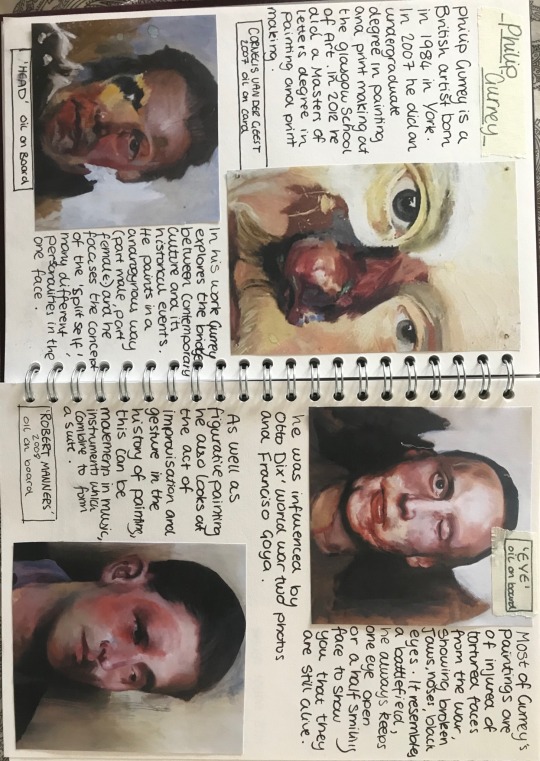 Philip
Gurney
Philip Gurrey is a
British artist born
in 1984 in York.
In 2007 he did an
undergraduate
degree in painting
and print making at
the glasgow School
of Art. in 2012 he
did a Masters of
Letters degree in
painting and print
making.
CORNELIS VAN DER GEEST
2007 oil on card
'HEAD' oil on Board
In his work Gurrey
explores the bridge
between contemporary
culture and its
historical events.
He paints in a
androgynous way
(part male, part
female) and he
focases the concept
of the 'split self',
many different
personalities in the
one face.
'EYE'
oil on board
Most of Gurrey's
paintings are
of injured of
tortured faces
from the war,
showing broken
Jaws, noses, black
eyes. It resembles
a battlefield,
he always keeps
one eye open
or a half smiling
face to show
you that they
are still alive.
he was influenced by
Otto Dix' world war two photos
and Francisco Goya.
As well as
figurative painting
he also looks at
the act of
improvisation and
gesture in the
history of painting,
this can be
movement in music,
instruments which
combine to form
a suite.
'ROBERT MANNERS'
2008
oil on board